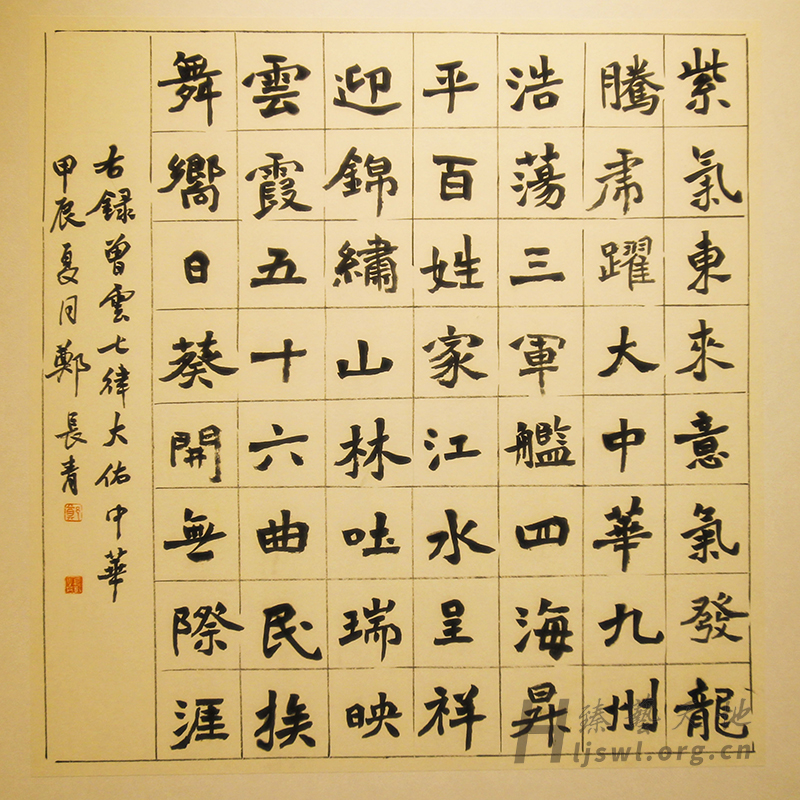 紫氣東來意氣發龍
騰虎躍大中華九州
浩蕩三軍艦四海昇
平百姓家江水呈祥
迎錦繡山林吐瑞映
雲霞五十六曲民族
舞嚮日葵開無際涯
右録曾雲七律大佑中華
甲辰夏月鄭長青
臻藝天池
ljswl.org.cn